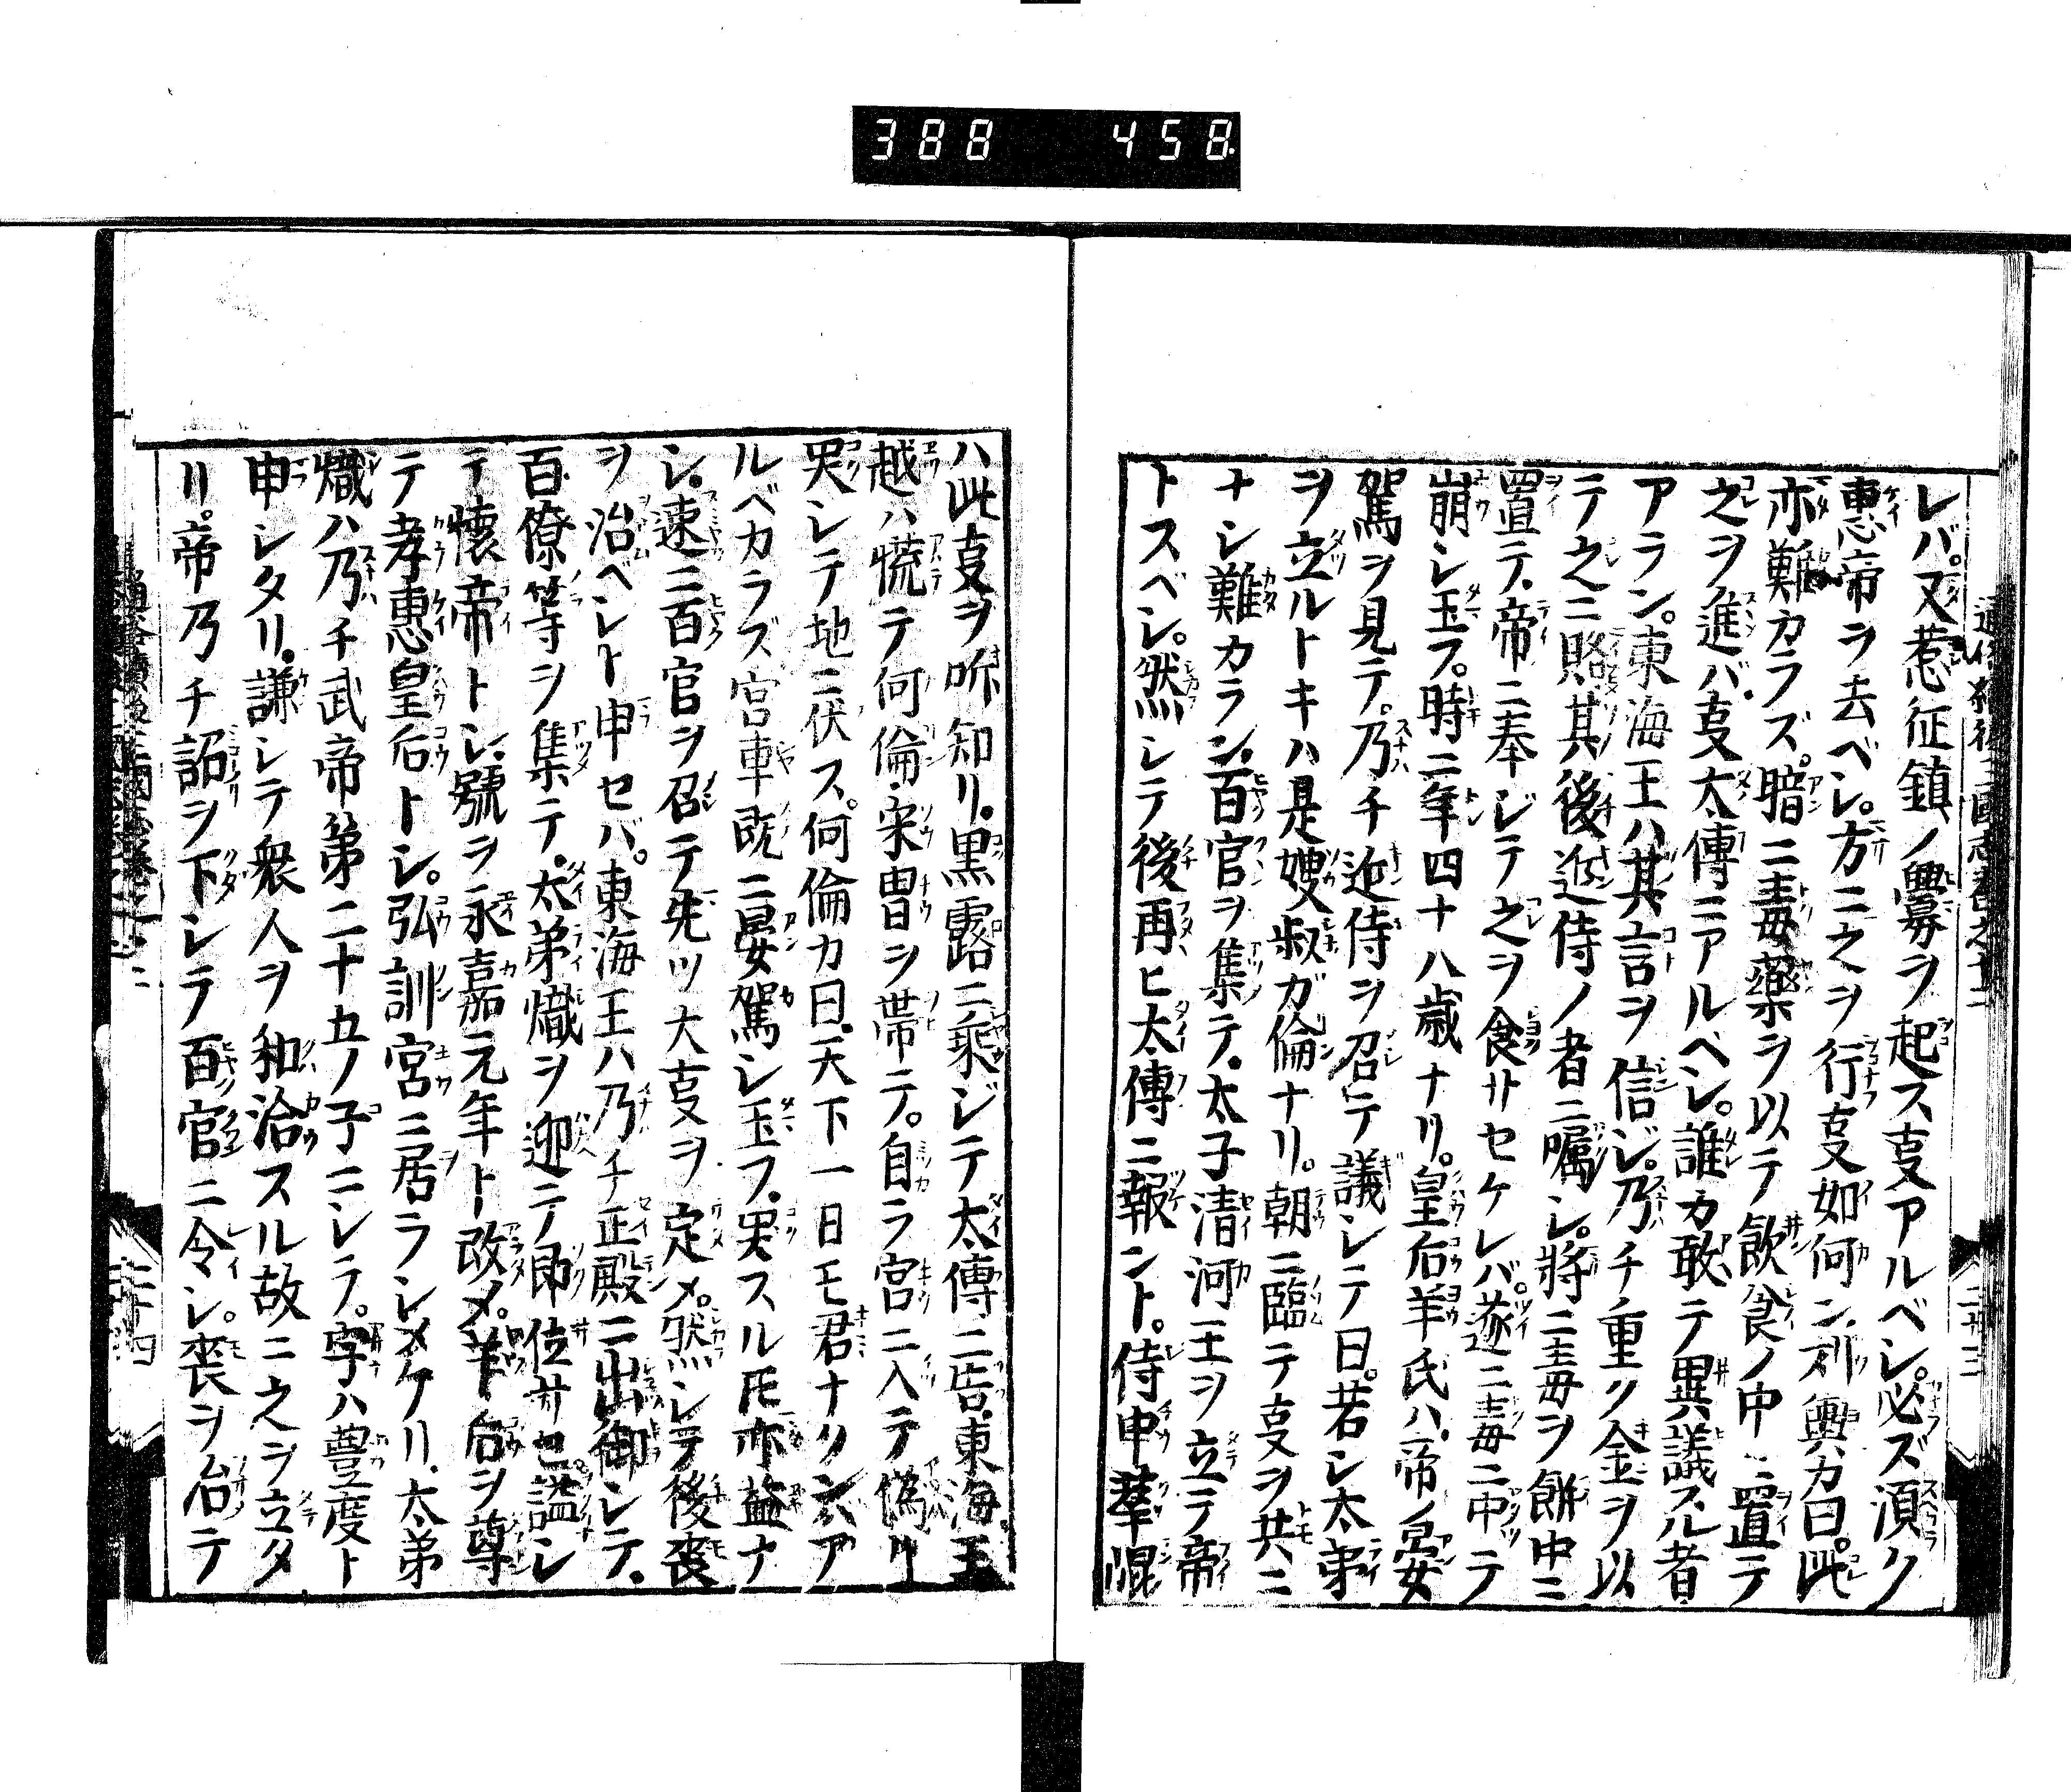 388 458
レバ。又惹征鎮ノ釁ヲ起ス𫝆アルベシ。必ズ須ク
惠帝ヲ去ベシ。方ニ之ヲ行𫝆如何ン。劉輿カ曰。此
亦難カラズ。暗ニ毒藥ヲ以テ飲食ノ中ニ置テ
之ヲ進バ。𫝆太傳ニアルベシ。誰カ敢テ異議スル者
アラン。東海王ハ其言ヲ信ジ。乃チ重ク金ヲ以
テ之ニ賂。其後近侍ノ者ニ囑シ。將ニ毒ヲ餅中ニ
置テ。帝ニ奉ジテ之ヲ食サセケレバ。遂ニ毒ニ中テ
崩シ玉フ。時ニ年四十八歳ナリ。皇后羊氏ハ。帝ノ晏
駕ヲ見テ。乃チ近侍ヲ召テ議シテ曰。若シ太弟
ヲ立ルトキハ是嫂叔ガ倫ナリ。朝ニ臨テ𫝆ヲ共ニ
ナシ難カラン。百官ヲ集テ。太子清河王ヲ立テ帝
トスベシ。然シテ後再ヒ太傳ニ報ント。侍中華混
ハ此𫝆ヲ听知リ。黒露ニ乘ジテ太傳ニ告。東海王
越ハ慌テ何倫宋冑ヲ帶テ。自ラ宮ニ入テ僞リ
哭シテ地ニ伏ス。何倫カ曰。天下一日モ君ナクンバア
ルベカラズ宮車既ニ晏駕シ玉フ。哭スル𪜈亦益ナ
シ。速ニ百官ヲ召テ先ツ大𫝆ヲ定メ。然シテ後喪
ヲ治ベシト申セバ。東海王ハ乃チ正殿ニ出御シテ。
百僚等ヲ集テ。太弟熾ヲ迎テ即位サセ。謚シ
テ懷帝トシ。號ヲ永嘉元年ト改メ。羊后ヲ尊
テ孝惠皇后トシ。弘訓宮ニ居ラシメケリ。太弟
熾ハ乃チ武帝第二十五ノ子ニシテ。字ハ豊度ト
申シタリ。謙シテ衆人ヲ和洽スル故ニ之ヲ立タ
リ。帝乃チ詔ヲ下シテ百官ニ令シ。喪ヲ治テ